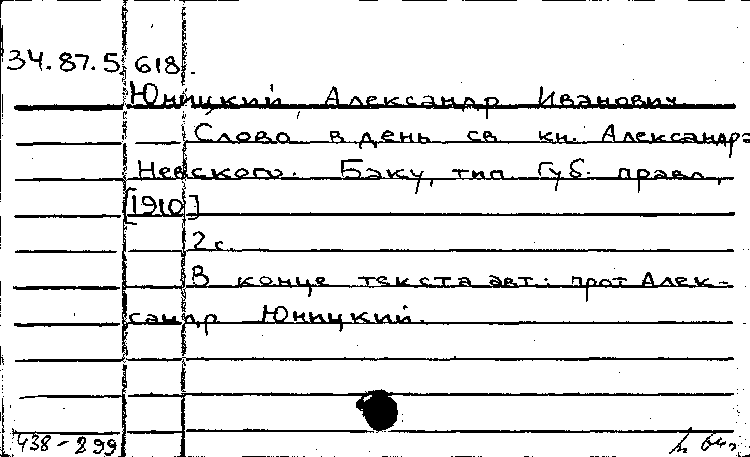 34.87.5 618.
Юницкий, Александр Иванович.
Слово в день св. кн. Александра
Невского. Баку, тип. Губ. правл.,
[1910]
2 с.
В конце текста авт.: прот. Алек-
сандр Юницкий.
438-899